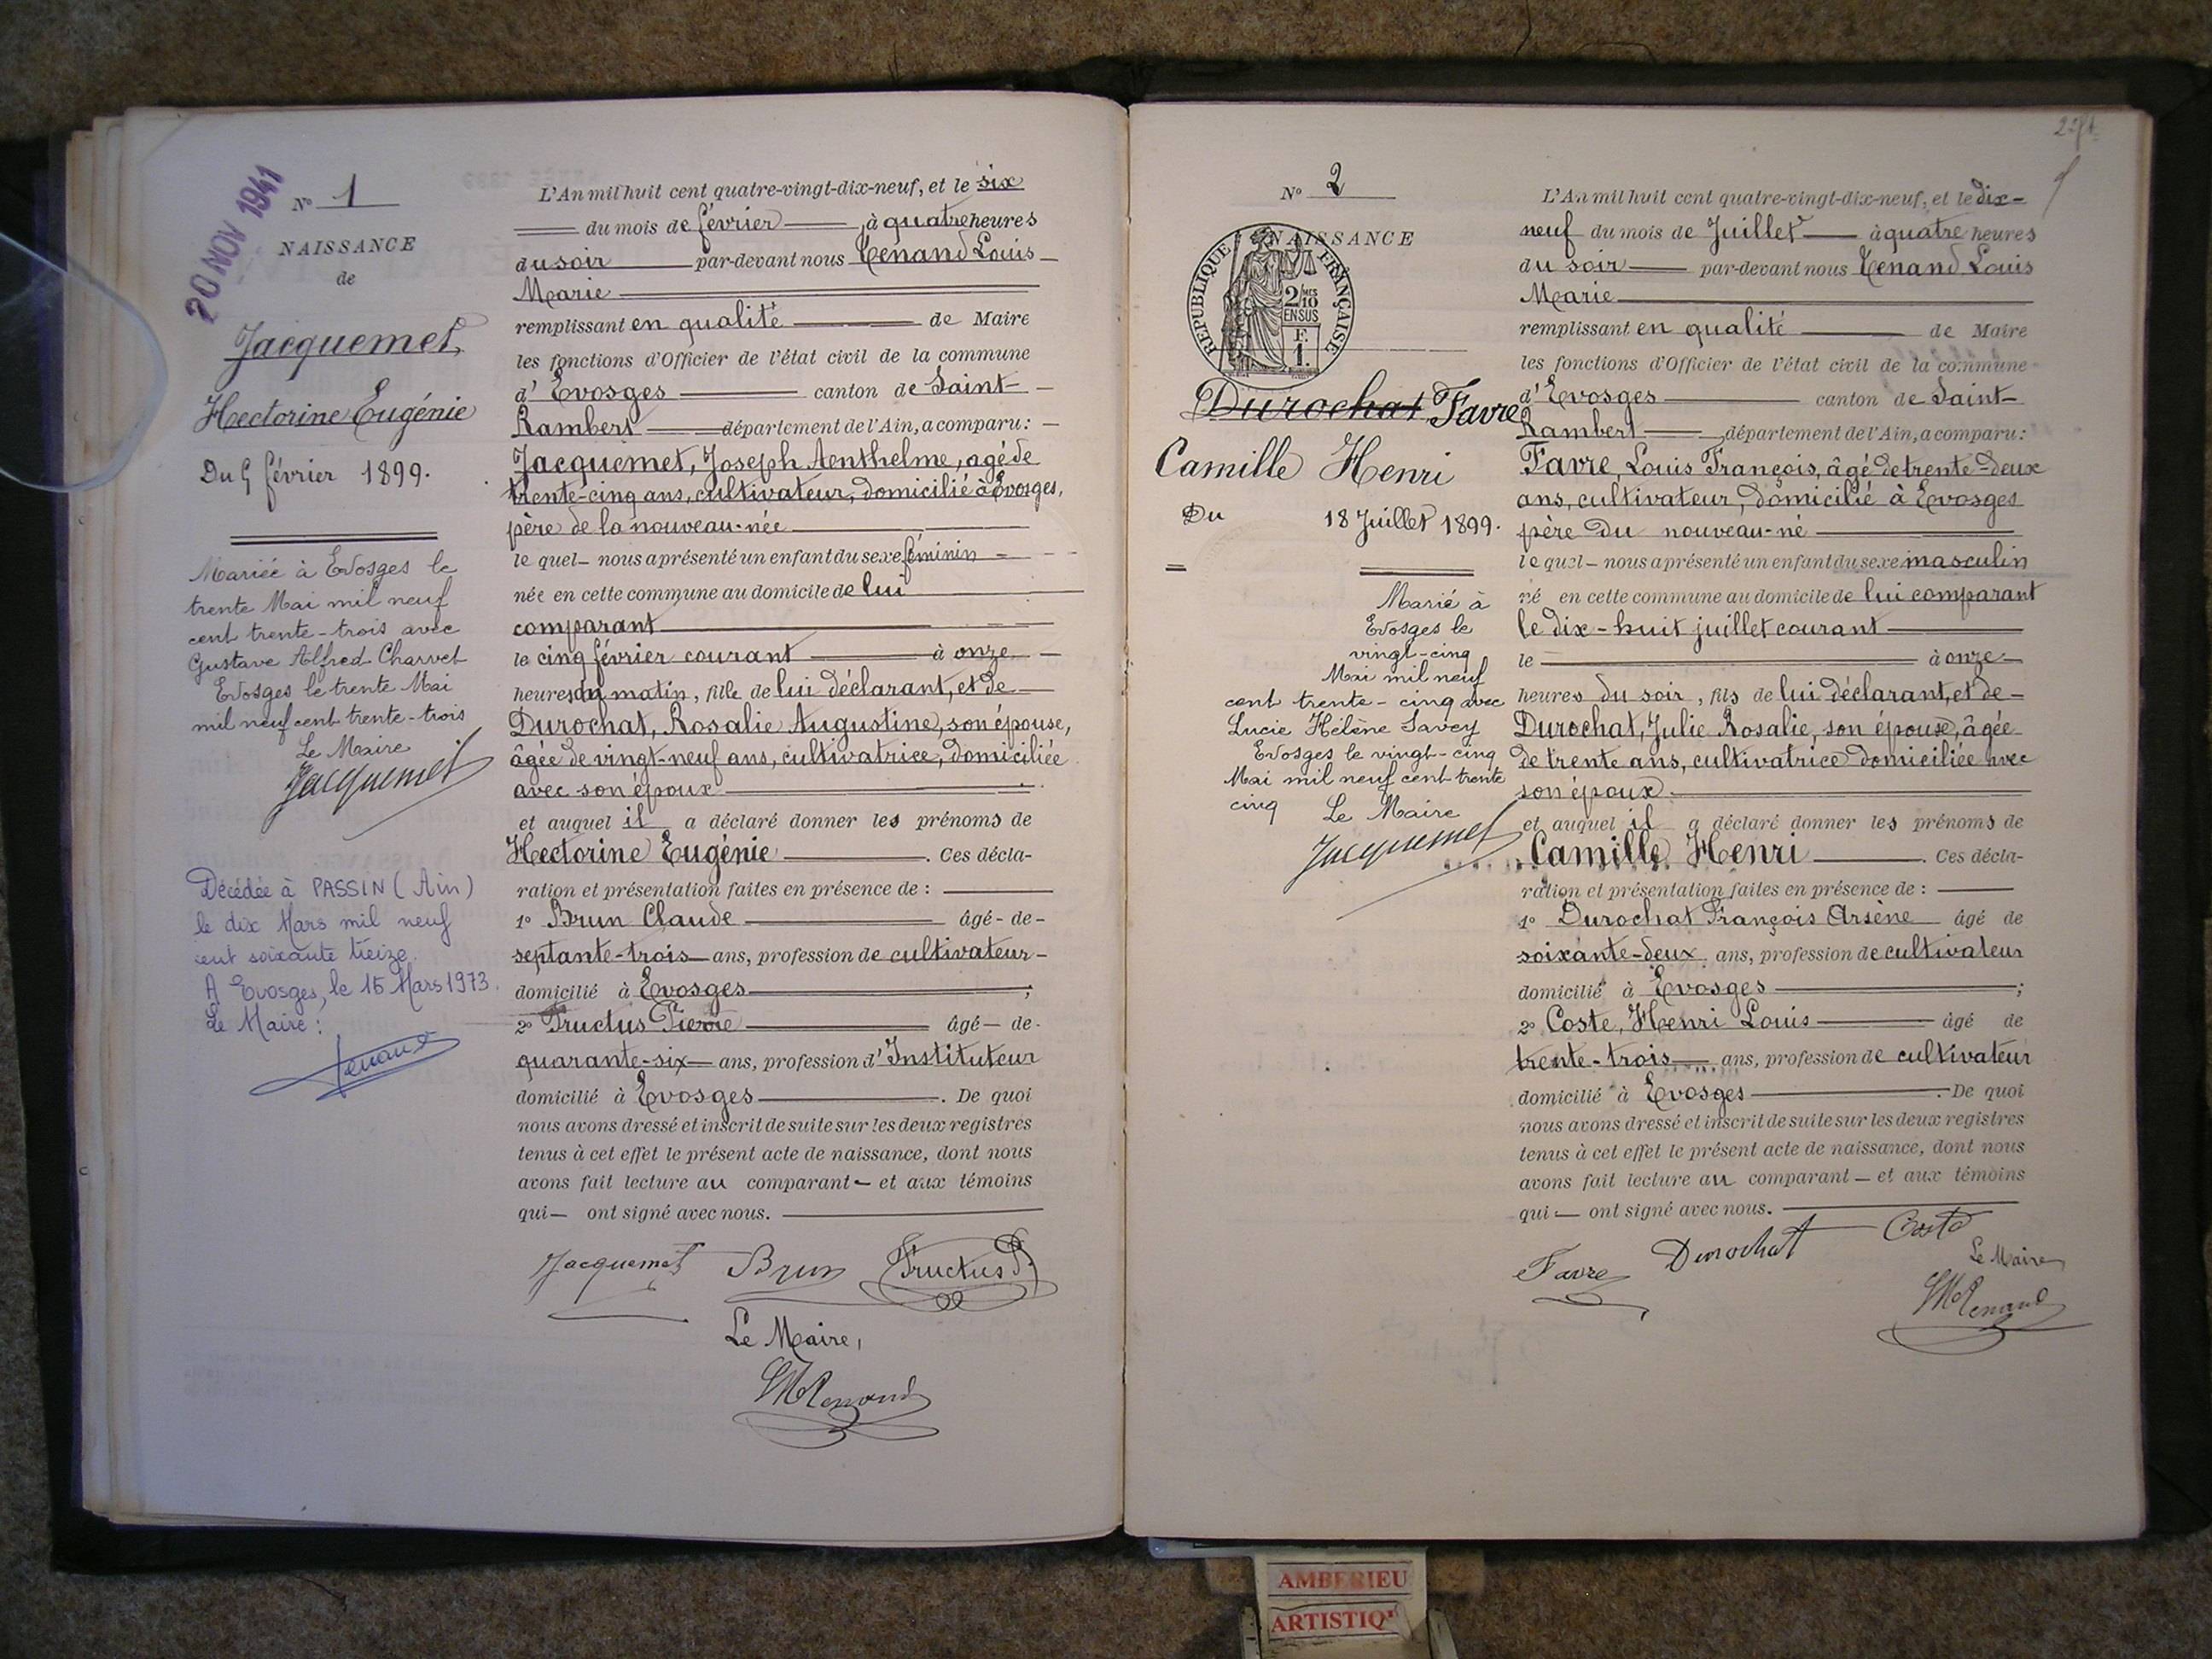 20 NOV 1941
N° 1
NAISSANCE
de
Jacquemet
Hectorine Eugénie
Du 5 février 1899.
Mariée à Evosges le
trente Mai mil neuf
cent trente-trois avec
Gustave Alfred Charvet
Evosges le trente Mai
mil neuf cent trente-trois
Le Maire
Jacquemet
Décédée à PASSIN (Ain)
le dix Mars mil neuf
cent soixante treize.
A Evosges, le 15 Mars 1973.
Le Maire :
L'An mil huit cent quatre-vingt-dix-neuf, et le six
du mois de février, à quatre heures
du soir par-devant nous Tenand Louis
Marie
remplissant en qualité de Maire
les fonctions d'Officier de l'état civil de la commune
d'Evosges canton de Saint-
Rambert département de l'Ain, a comparu :
Jacquemet, Joseph Aenthelme, agé de
trente-cinq ans, cultivateur, domicilié à Evosges,
père de la nouveau-née
le quel nous a présenté un enfant du sexe féminin
née en cette commune au domicile de lui
comparant
le cinq février courant à onze
heures du matin, fille de lui déclarant, et de
Durochat, Rosalie Augustine, son épouse,
âgée de vingt-neuf ans, cultivatrice, domiciliée
avec son époux
et auquel il a déclaré donner les prénoms de
Hectorine Eugénie. Ces décla-
ration et présentation faites en présence de :
1° Brun Claude âgé de
septante-trois ans, profession de cultivateur
domicilié à Evosges ;
2° Fructus Pierre âgé de
quarante-six ans, profession d'Instituteur
domicilié à Evosges. De quoi
nous avons dressé et inscrit de suite sur les deux registres
tenus à cet effet le présent acte de naissance, dont nous
avons fait lecture au comparant et aux témoins
qui ont signé avec nous.
Jacquemet Brun Fructus P.
Le Maire,
N° 2
NAISSANCE
REPUBLIQUE FRANÇAISE
2/10 MES
EN SUS
F.
1
Durochat Favre
Camille Henri
Du 18 Juillet 1899.
Marié à
Evosges le
vingt-cinq
Mai mil neuf
cent trente-cinq avec
Lucie Hélène Savey
Evosges le vingt-cinq
Mai mil neuf cent trente
cinq Le Maire
Jacquemet
L'An mil huit cent quatre-vingt-dix-neuf, et le dix-
neuf du mois de Juillet à quatre heures
du soir par-devant nous Tenand Louis
Marie
remplissant en qualité de Maire
les fonctions d'Officier de l'état civil de la commune
d'Evosges canton de Saint-
Rambert département de l'Ain, a comparu :
Favre, Louis François, âgé de trente-deux
ans, cultivateur, domicilié à Evosges
père du nouveau-né
le quel nous a présenté un enfant du sexe masculin
né en cette commune au domicile de lui comparant
le dix-huit juillet courant
le à onze
heures du soir, fils de lui déclarant, et de
Durochat, Julie Rosalie, son épouse, âgée
de trente ans, cultivatrice domiciliée avec
son époux.
et auquel il a déclaré donner les prénoms de
Camille Henri. Ces décla-
ration et présentation faites en présence de :
1° Durochat François Arsène âgé de
soixante-deux ans, profession de cultivateur
domicilié à Evosges ;
2° Coste, Henri Louis âgé de
trente-trois ans, profession de cultivateur
domicilié à Evosges. De quoi
nous avons dressé et inscrit de suite sur les deux registres
tenus à cet effet le présent acte de naissance, dont nous
avons fait lecture au comparant et aux témoins
qui ont signé avec nous.
Favre Durochat Coste
Le Maire
AMBERIEU
ARTISTIQ